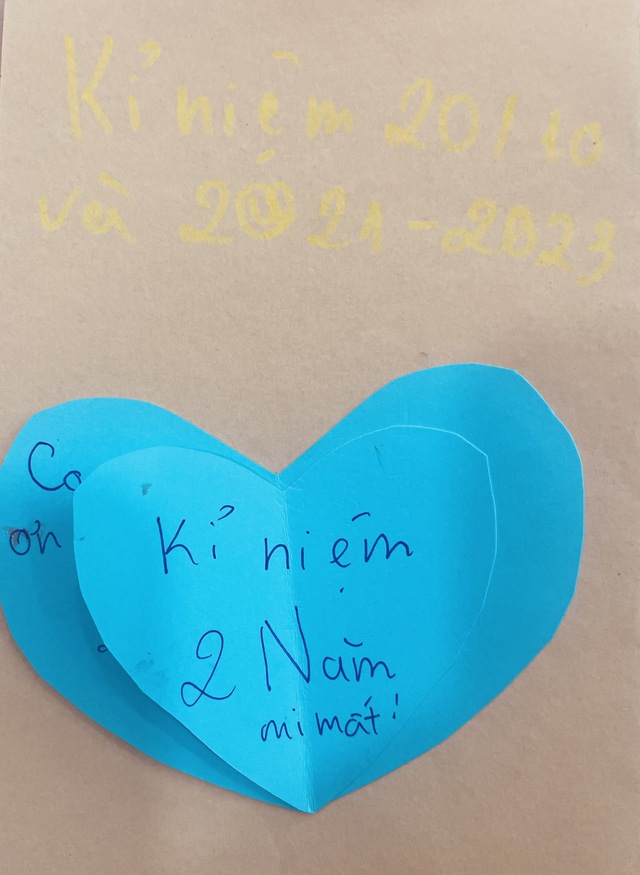 Kỉ niệm 20/10
và 2021-2023
Co
ơn
Kỉ niệm
2 Năm
mi mắt!